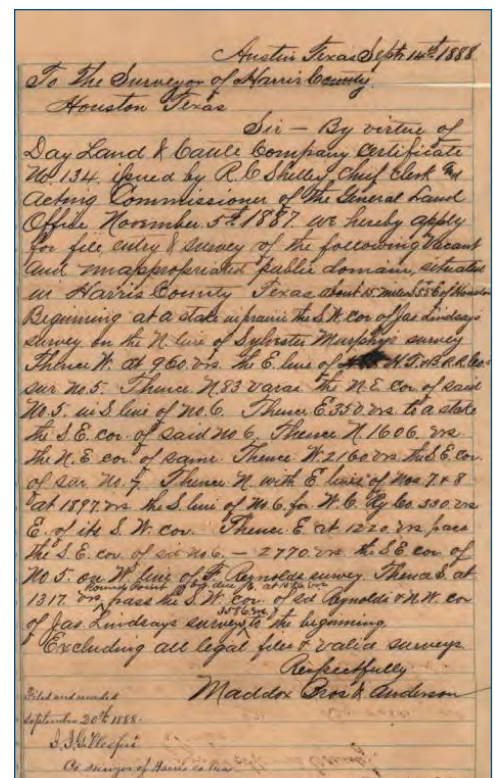 Austin Texas Sept. 14th 1888
To the Surveyor of Harris County
Houston Texas
Sir — By virtue of
Day Land & Cattle Company Certificate
No. 134 issued by R. C. Shelley, Chief Clerk and
Acting Commissioner of the General Land
Office, November 5th 1887 we hereby apply
for file entry & survey of the following Vacant
and unappropriated public domain, situated
in Harris County Texas about 15 miles S 55 E of Houston
Beginning at a stake in prairie the S.W. cor of Jas Lindsays
survey on the N. line of Sylvester Murphys survey
Thence W. at 960 vrs. the E. line of H. T. & B. R. R. Co's
sur no. 5. Thence N 83 varas the N.E. Cor of said
No 5. in S line of no. 6. Thence E 350 vrs to a stake
the S.E. cor. of said no 6, Thence N. 1606 vrs
the N.E. cor. of same. Thence W. 2160 vrs the S.E. cor.
of sur. No. 7. Thence N. with E. lines of Nos 7 & 8
at 1897 vrs the S. line of No 6. for W. C. Ry Co. 330 vrs
E. of its S.W. cor. Thence E at 1220 vrs pass
the S.E. cor. of sur no 6. — 2770 vrs the S.E cor. of
No 5. on W. line of F. Reynolds survey. Thence S. at
1317. vrs pass the S.W. Cor. of sd Reynolds & N.W. cor
of Jas Lindsays survey 3586 vrs to the beginning.
Excluding all legal files & valid surveys
Respectfully
Maddox Bros & Anderson
Filed and recorded
September 20th 1888.
J. J. Gillespie
Co surveyor of Harris co Tex